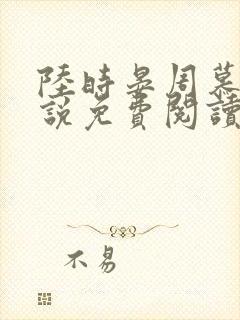 陸時晏周慕
說免費閱讀
不易